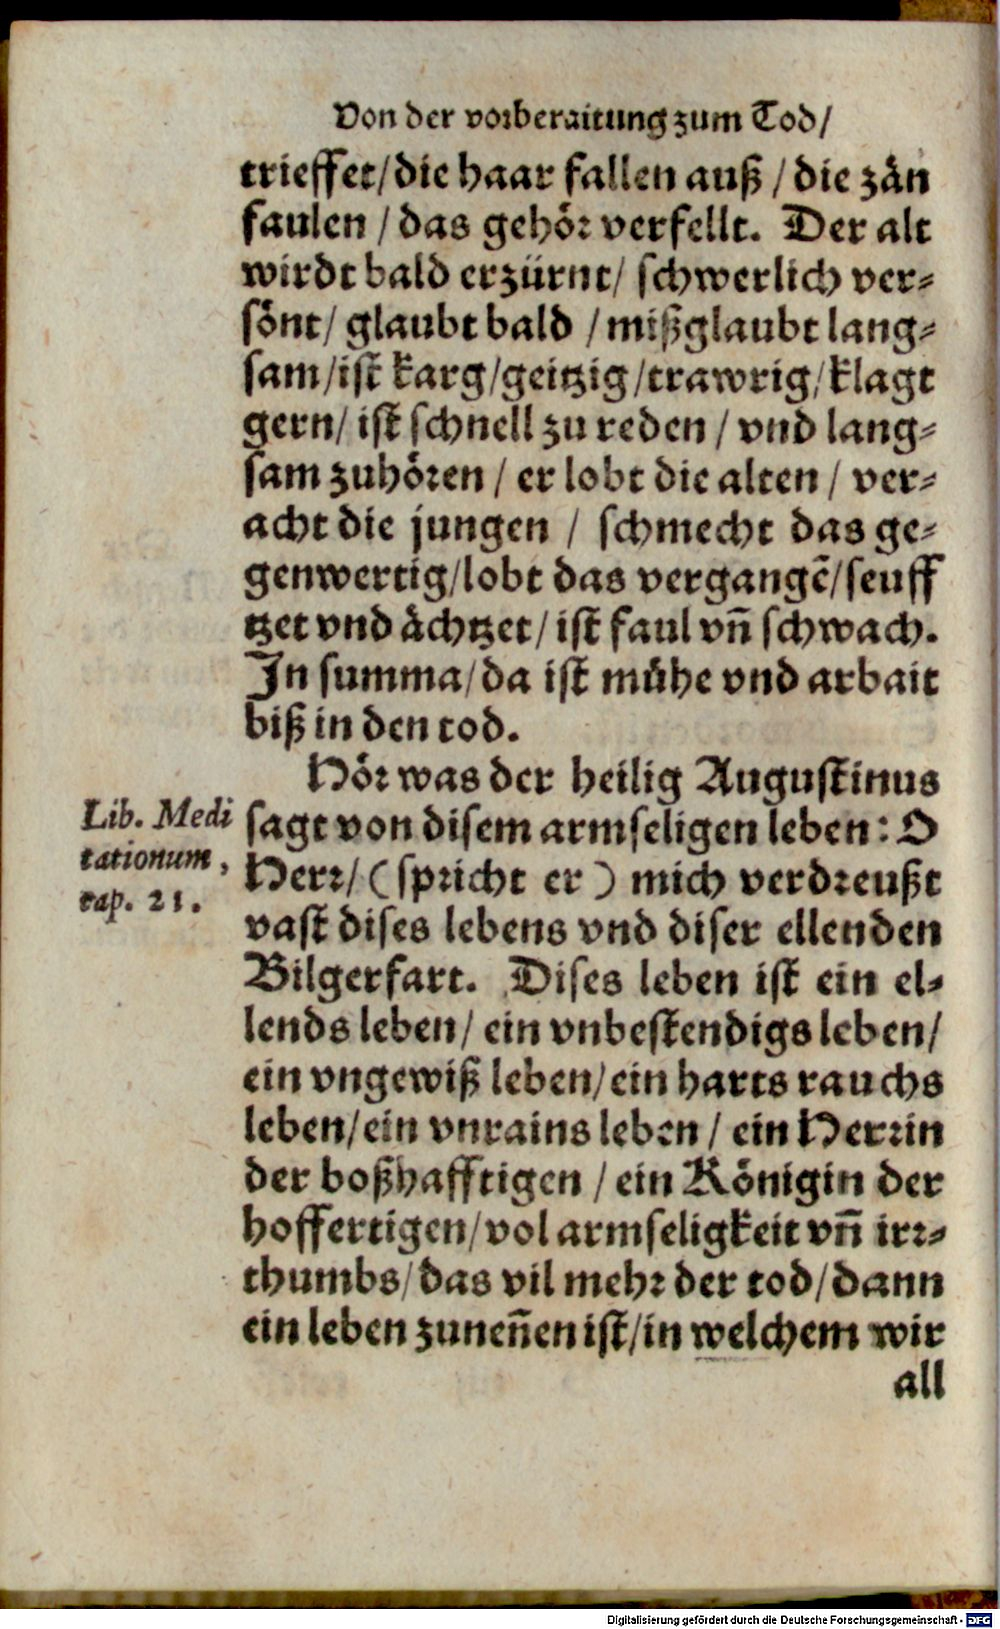 Von der vorberaitung zum Tod/
trieffet/die haar fallen auß/die zän
faulen/das gehör verfellt. Der alt
wirdt bald erzürnt/schwerlich ver⸗
sönt/glaubt bald/mißglaubt lang⸗
sam/ist karg/geitzig/trawrig/klagt
gern/ist schnell zu reden/vnd lang⸗
sam zuhören/er lobt die alten/ver⸗
acht die jungen/schmecht das ge⸗
genwertig/lobt das vergangē/seuff
tzet vnd ächtzet/ist faul vn̄ schwach.
In summa/da ist mühe vnd arbait
biß in den tod.
Hör was der heilig Augustinus
Lib. Medi
tationum,
cap. 21.
sagt von disem armseligen leben: O
Herr/(spricht er) mich verdreußt
vast dises lebens vnd diser ellenden
Bilgerfart. Dises leben ist ein el⸗
lends leben/ein vnbestendigs leben/
ein vngewiß leben/ein harts rauchs
leben/ein vnrains leben/ein Herrin
der boßhafftigen/ein Königin der
hoffertigen/vol armseligkeit vn̄ irr⸗
thumbs/das vil mehr der tod/dann
ein leben zunen̄en ist/in welchem wir
all
Digitalisierung gefördert durch die Deutsche Forschungsgemeinschaft - DFG